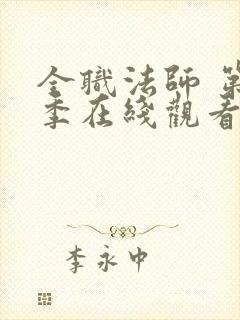 全職法師 第
季在綫觀看
李永中